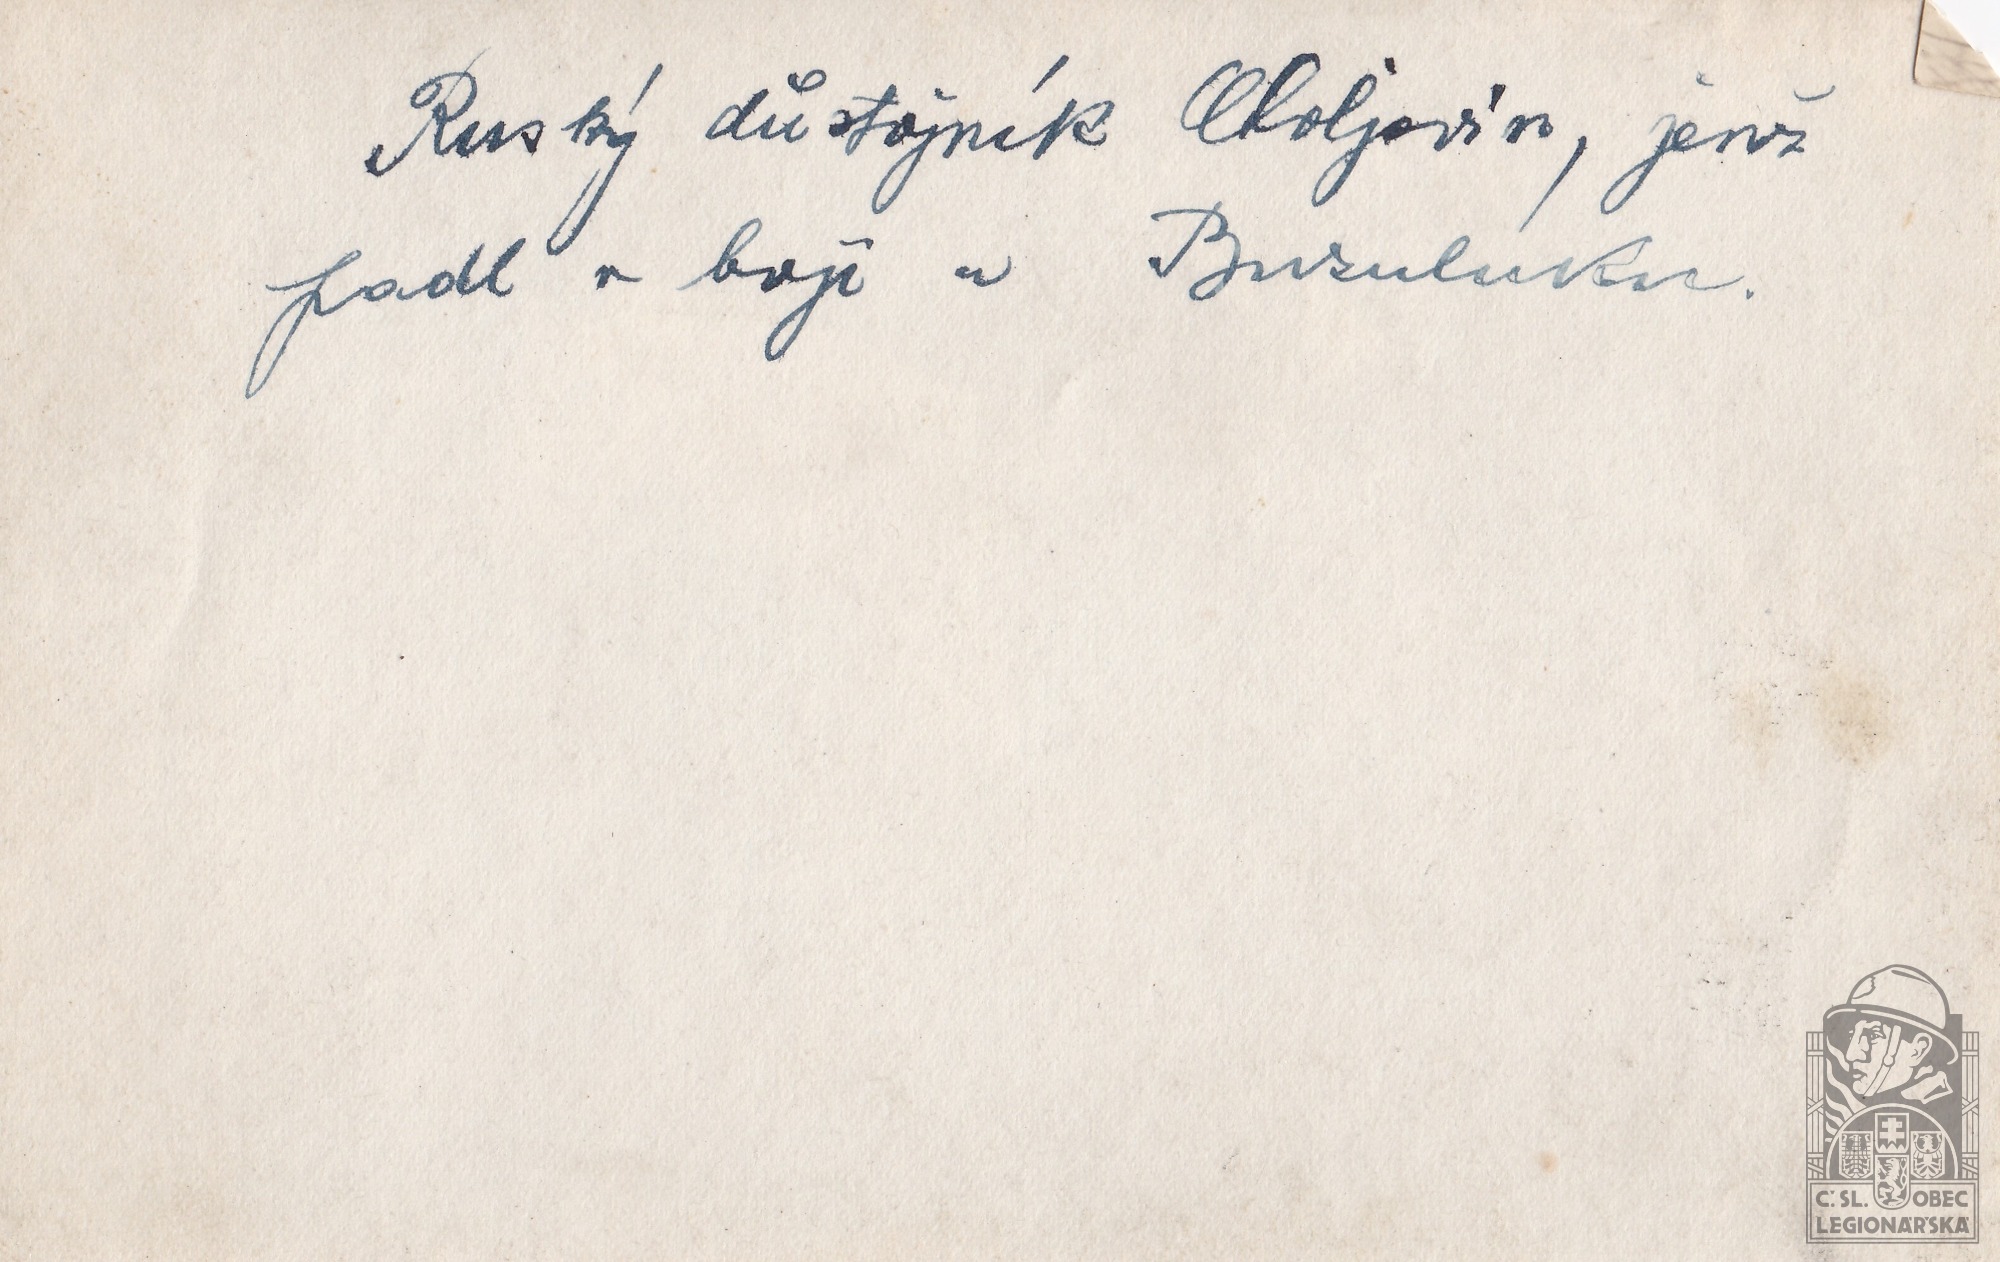 Ruský důstojník Choljavin, jenž
padl v boji u Buzuluku.
Č. SL. OBEC
LEGIONÁŘSKÁ